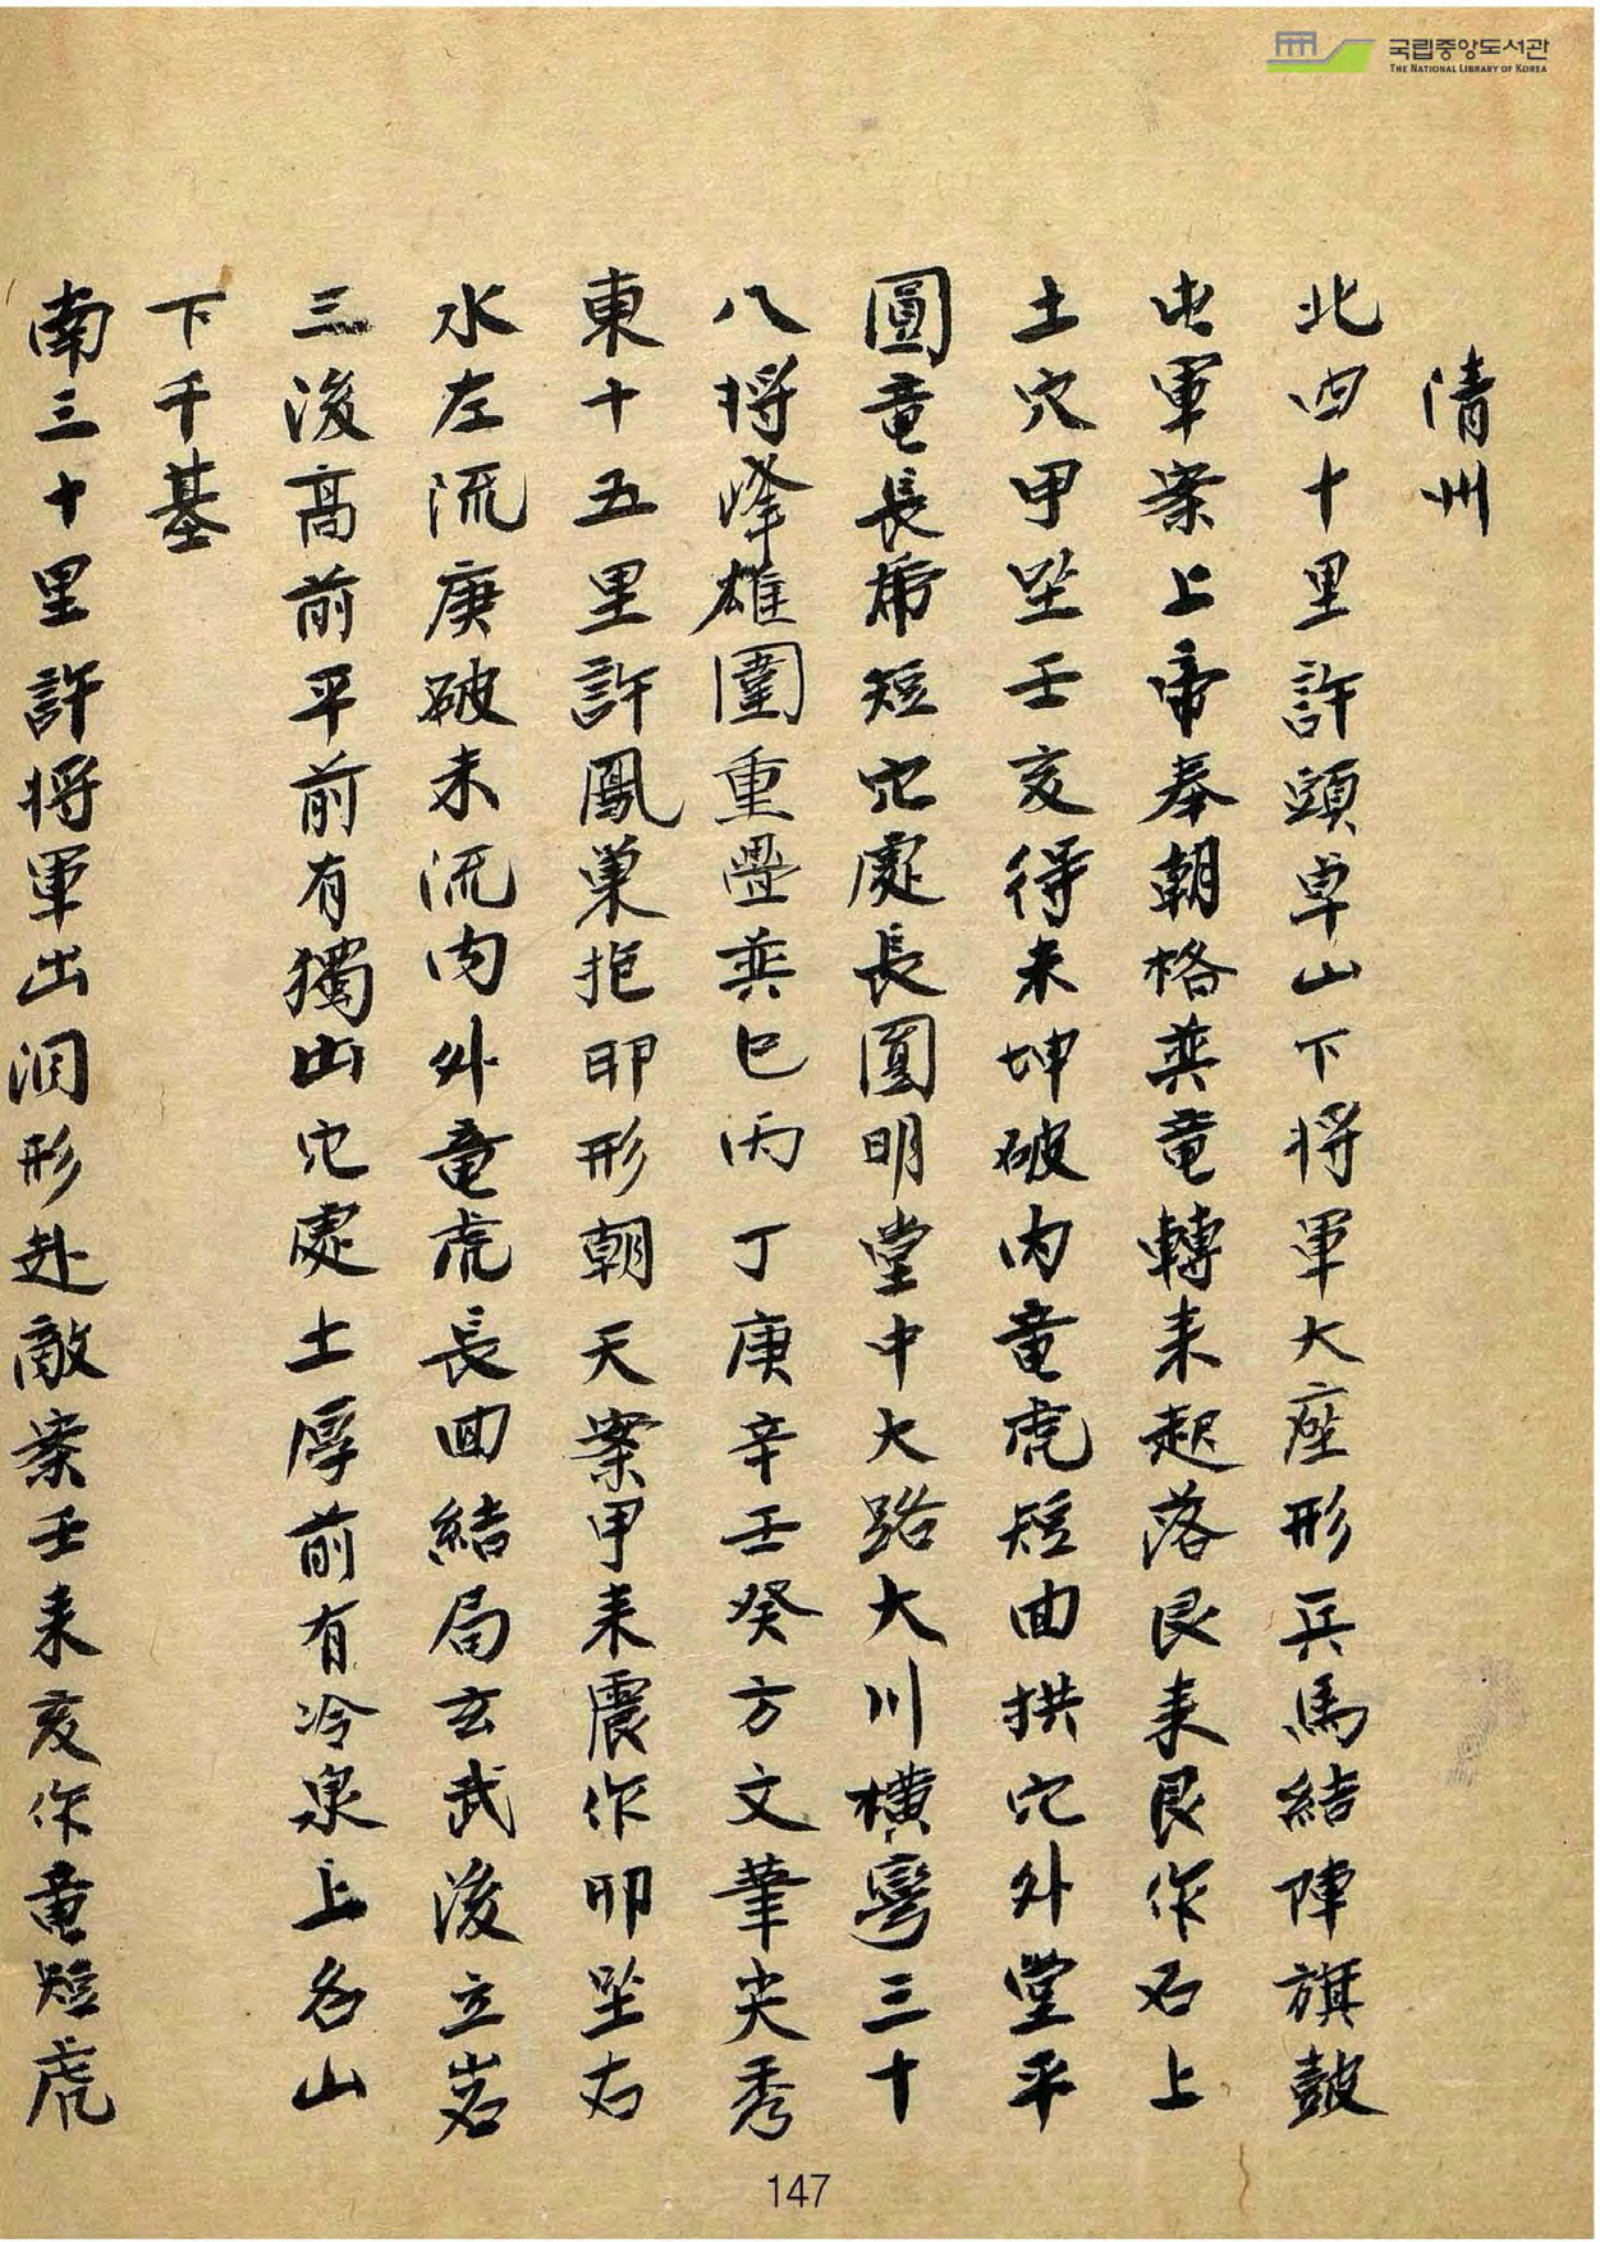 국립중앙도서관
THE NATIONAL LIBRARY OF KOREA
清州
北四十里許頭卓山下将軍大座形兵馬結陣旗皷
屯軍案上帝奉朝格巽竜轉来起落艮来艮作石上
土穴甲坐壬亥得来坤破内竜虎短回拱穴外堂平
圓竜長虎短穴處長圓明堂中大路大川横弯三十
八将峰雄圍重疊巽巳丙丁庚辛壬癸方文筆尖秀
東十五里許鳳巢抱卵形朝天案甲来震作卯坐右
水左流庚破未流内外竜虎長回結局玄武後立岩
三後高前平前有獨山穴處土厚前有冷泉上名山
下千基
南三十里許将軍出洞形赴敵案壬来亥作竜短虎
147